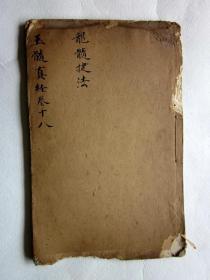 龍髓捷法
玉髓真经卷十八